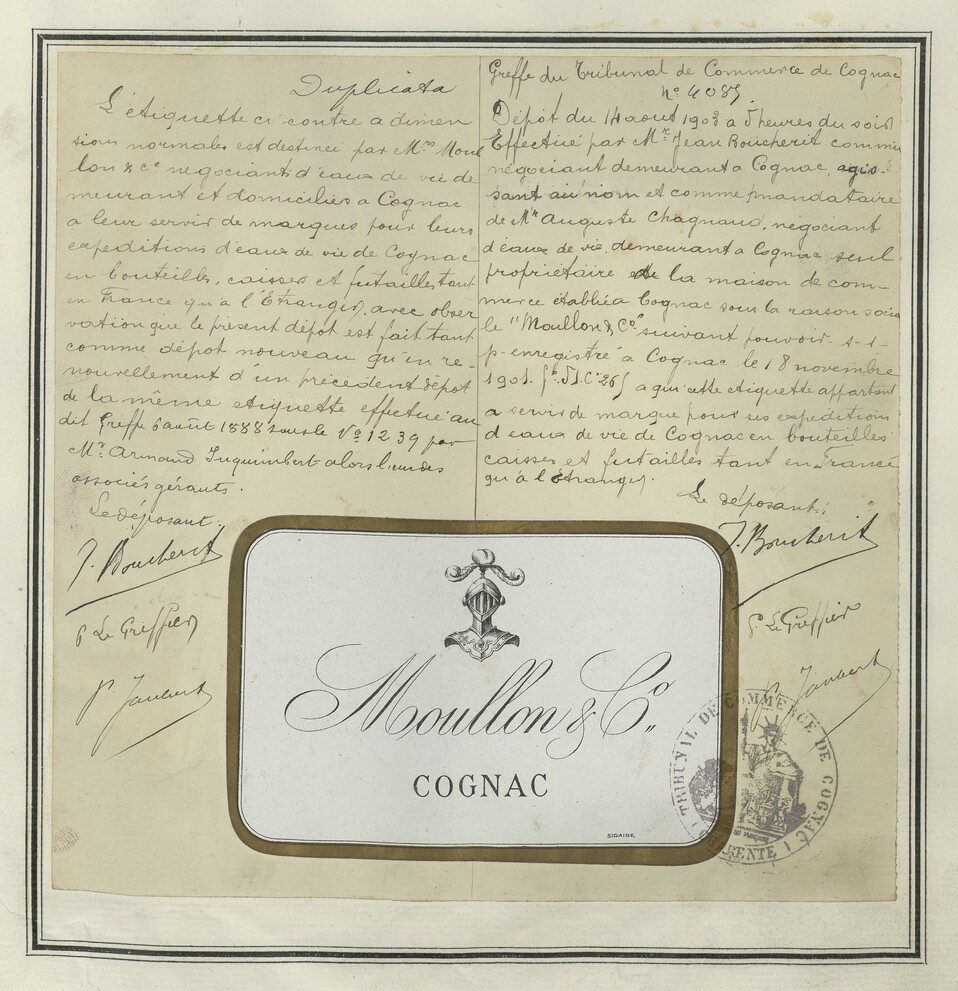 Duplicata
L'étiquette ci contre a dimen
sions normales est destinée par Mrs Moul
lon & Co négociants d'eaux de vie de
meurant et domiciliés a Cognac
a leur servir de marques pour leurs
expeditions d'eaux de vie de Cognac
en bouteilles, caisses et futailles tant
en France qu'a l'Etranger, avec obser
vation que le présent dépôt est fait tant
comme dépot nouveau qu'en re-
nouvellement d'un précédent dépot
de la même etiquette effectué au
dit Greffe 6 août 1888 sous le No 1239 par
Mr. Armand Inquimbert alors l'un des
associés gérants.
Le déposant:
J. Boucherit
P Le Greffier
P. Jaubert
Greffe du Tribunal de Commerce de Cognac
No 4085
Dépot du 14 aout 1903 a 5 heures du soir
Effectué par Mr Jean Boucherit commis
négociant demeurant a Cognac, agis-
sant au nom et comme mandataire
de Mr Auguste Chagnaud, négociant
d'eaux de vie demeurant a Cognac seul
propriétaire de la maison de com-
merce établie a Cognac sous la raison socia
le "Moullon & Co" suivant pouvoir s-s-
p. enregistré a Cognac le 18 novembre
1901. a qui cette etiquette appartient
a servir de marque pour ses expeditions
d'eaux de vie de Cognac en bouteilles
caisses et futailles tant en France
qu'à l'étranger.
Le déposant:
J. Boucherit
P. Le Greffier
P. Jaubert
Moullon & Co.
COGNAC
SIDAINE
TRIBUNAL DE COMMERCE DE COGNAC